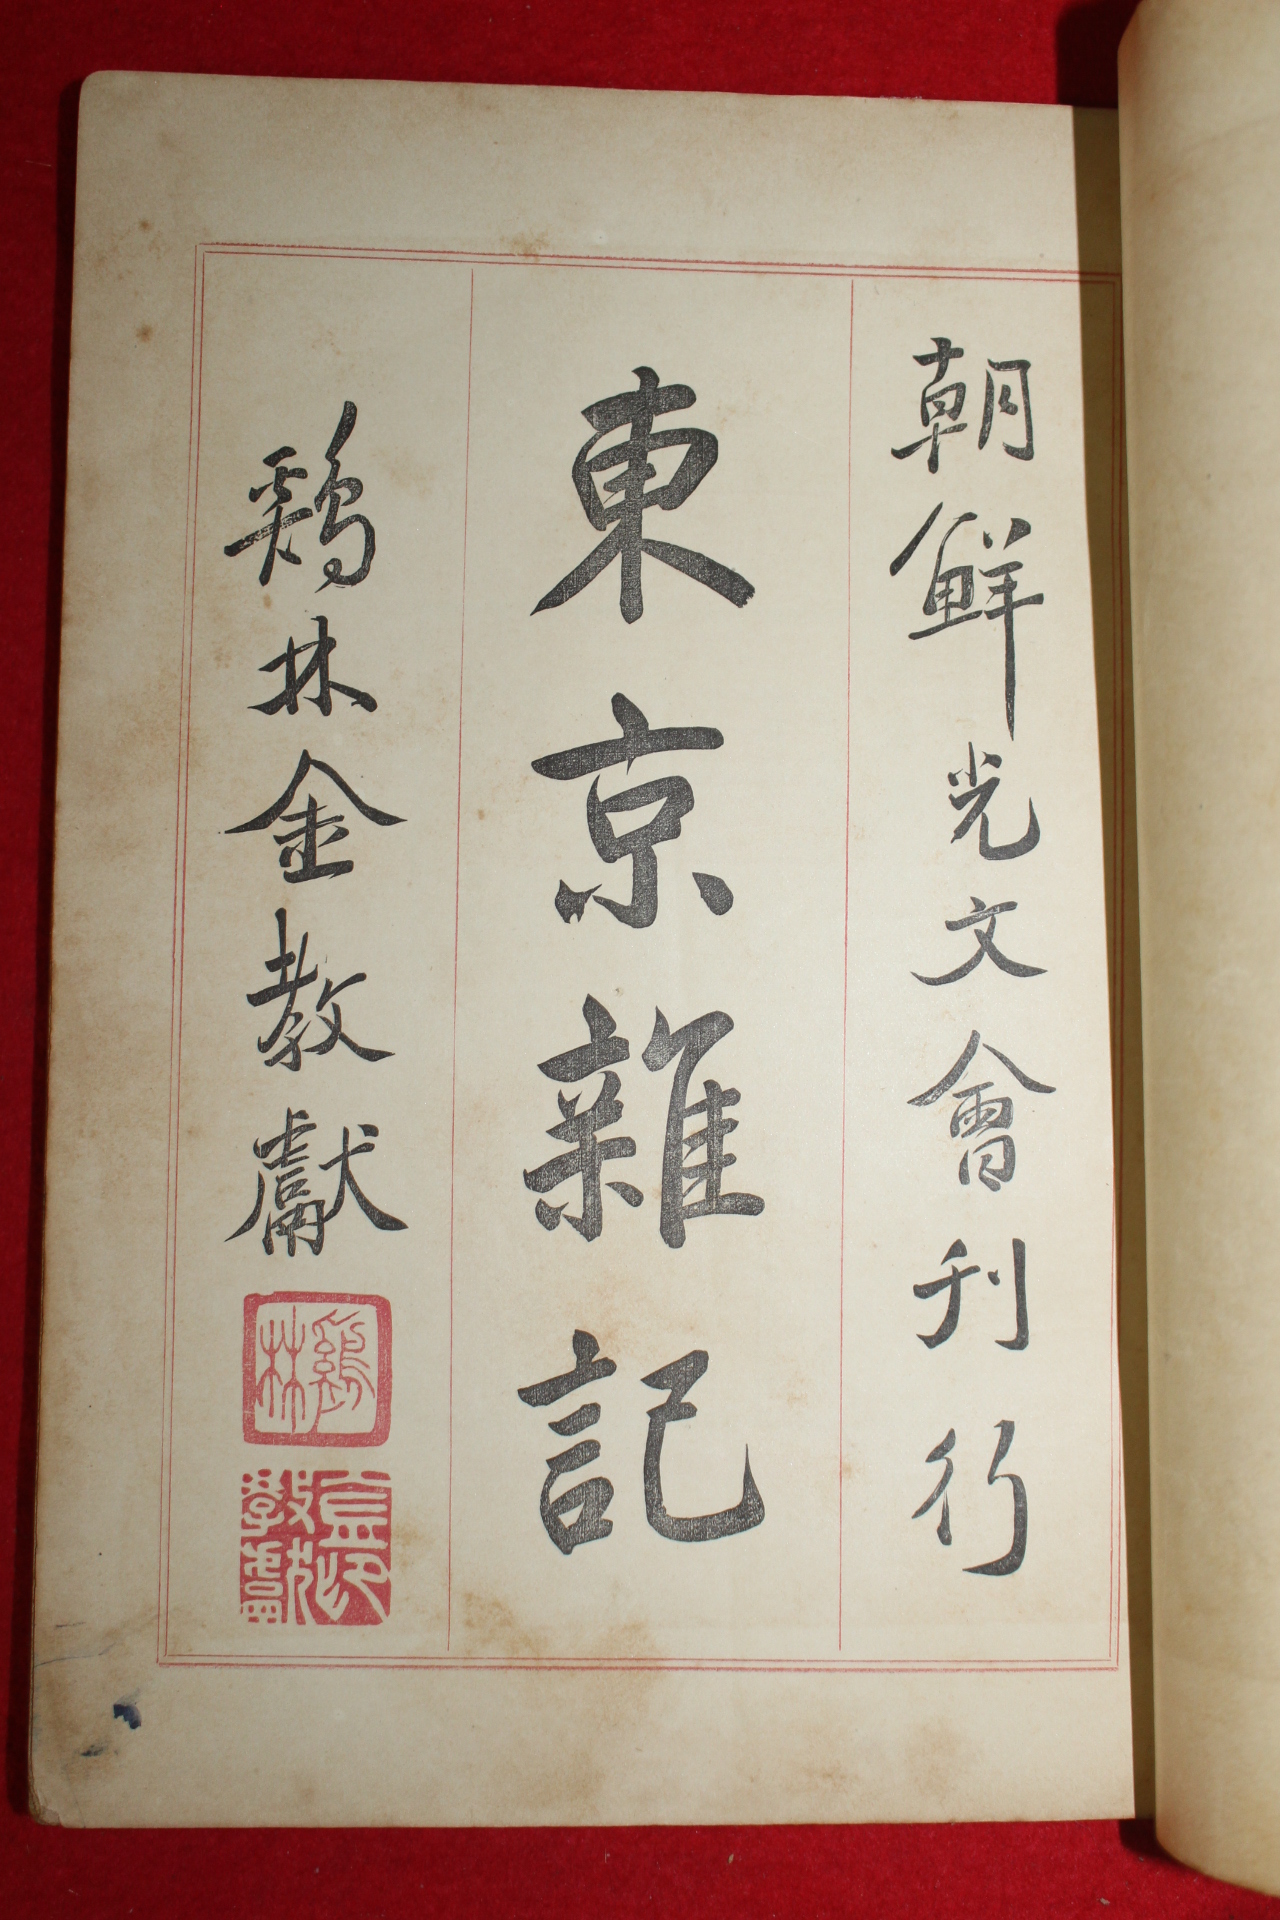 朝鮮光文會刊行
東京雜記
鷄林金教獻
鷄林